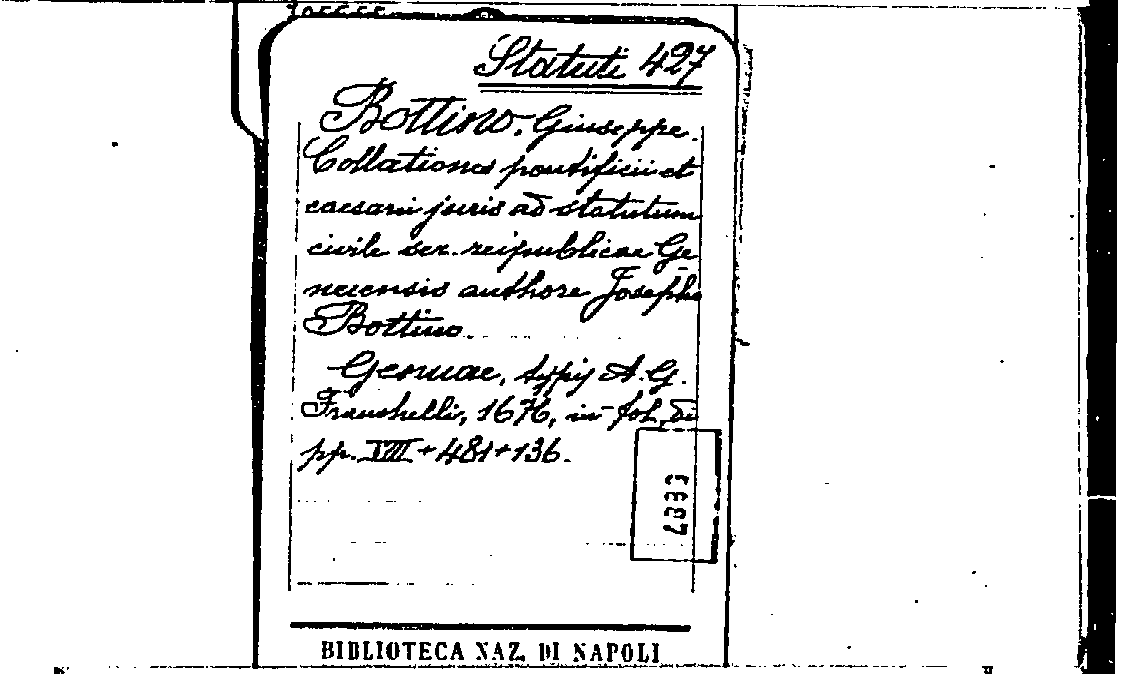 Statuti 427
Bottino, Giuseppe.
Collationes pontificii et
caesarei juris ad statutum
civile ser. reipublicae Ge
nuensis authore Josepho
Bottino
Genuae, typis A. G.
Franchelli, 1676, in fol, di
pp. VIII + 481 + 136.
BIBLIOTECA NAZ. DI NAPOLI